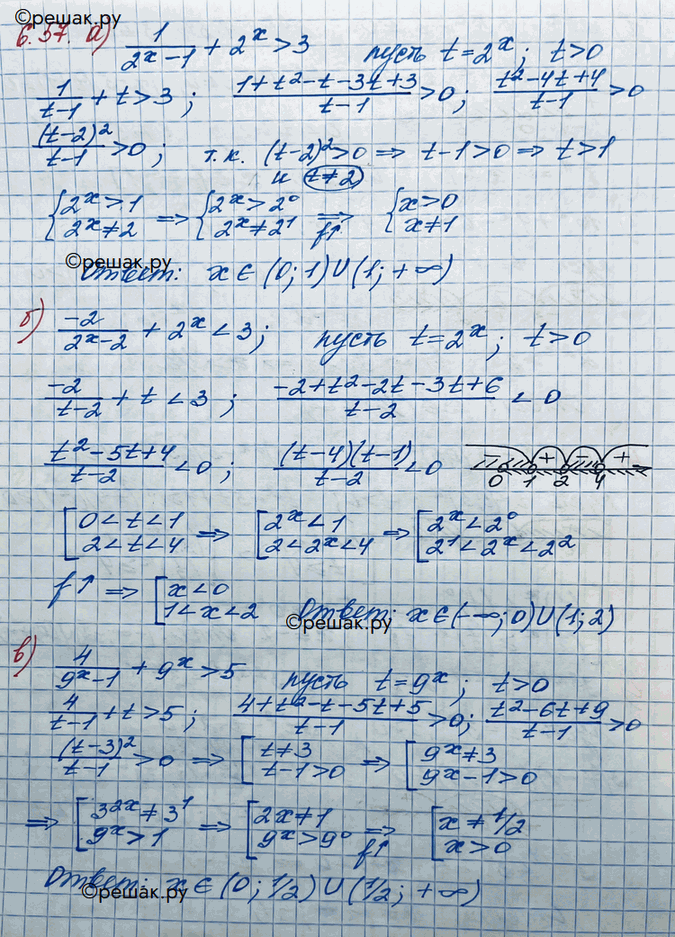 ©решак.ру
6.37. а) 1/(2^x-1) + 2^x > 3 пусть t=2^x; t>0
1/(t-1) + t > 3; (1+t²-t-3t+3)/(t-1) > 0; (t²-4t+4)/(t-1) > 0
(t-2)²/(t-1) > 0; т.к. (t-2)² > 0 ⇒ t-1>0 ⇒ t>1
и t≠2
{2^x>1 2^x≠2 ⇒ {2^x>2^0 2^x≠2^1 ⇒ f↑ {x>0 x≠1
©решак.ру
Ответ: x∈(0;1)∪(1;+∞)
б) -2/(2^x-2) + 2^x < 3; пусть t=2^x; t>0
-2/(t-2) + t < 3; (-2+t²-2t-3t+6)/(t-2) < 0
(t²-5t+4)/(t-2) < 0; (t-4)(t-1)/(t-2) < 0 - + - + 0 1 2 4
[0<t<1 2<t<4 ⇒ [2^x<1 2<2^x<4 ⇒ [2^x<2^0 2^1<2^x<2^2
f↑ ⇒ [x<0 1<x<2 Ответ: x∈(-∞;0)∪(1;2)
©решак.ру
в) 4/(9^x-1) + 9^x > 5 пусть t=9^x; t>0
4/(t-1) + t > 5; (4+t²-t-5t+5)/(t-1) > 0; (t²-6t+9)/(t-1) > 0
(t-3)²/(t-1) > 0 ⇒ [t≠3 t-1>0 ⇒ [9^x≠3 9^x-1>0
⇒ [3^2x≠3^1 9^x>1 ⇒ [2x≠1 9^x>9^0 ⇒ f↑ [x≠1/2 x>0
Ответ: x∈(0;1/2)∪(1/2;+∞)
©решак.ру